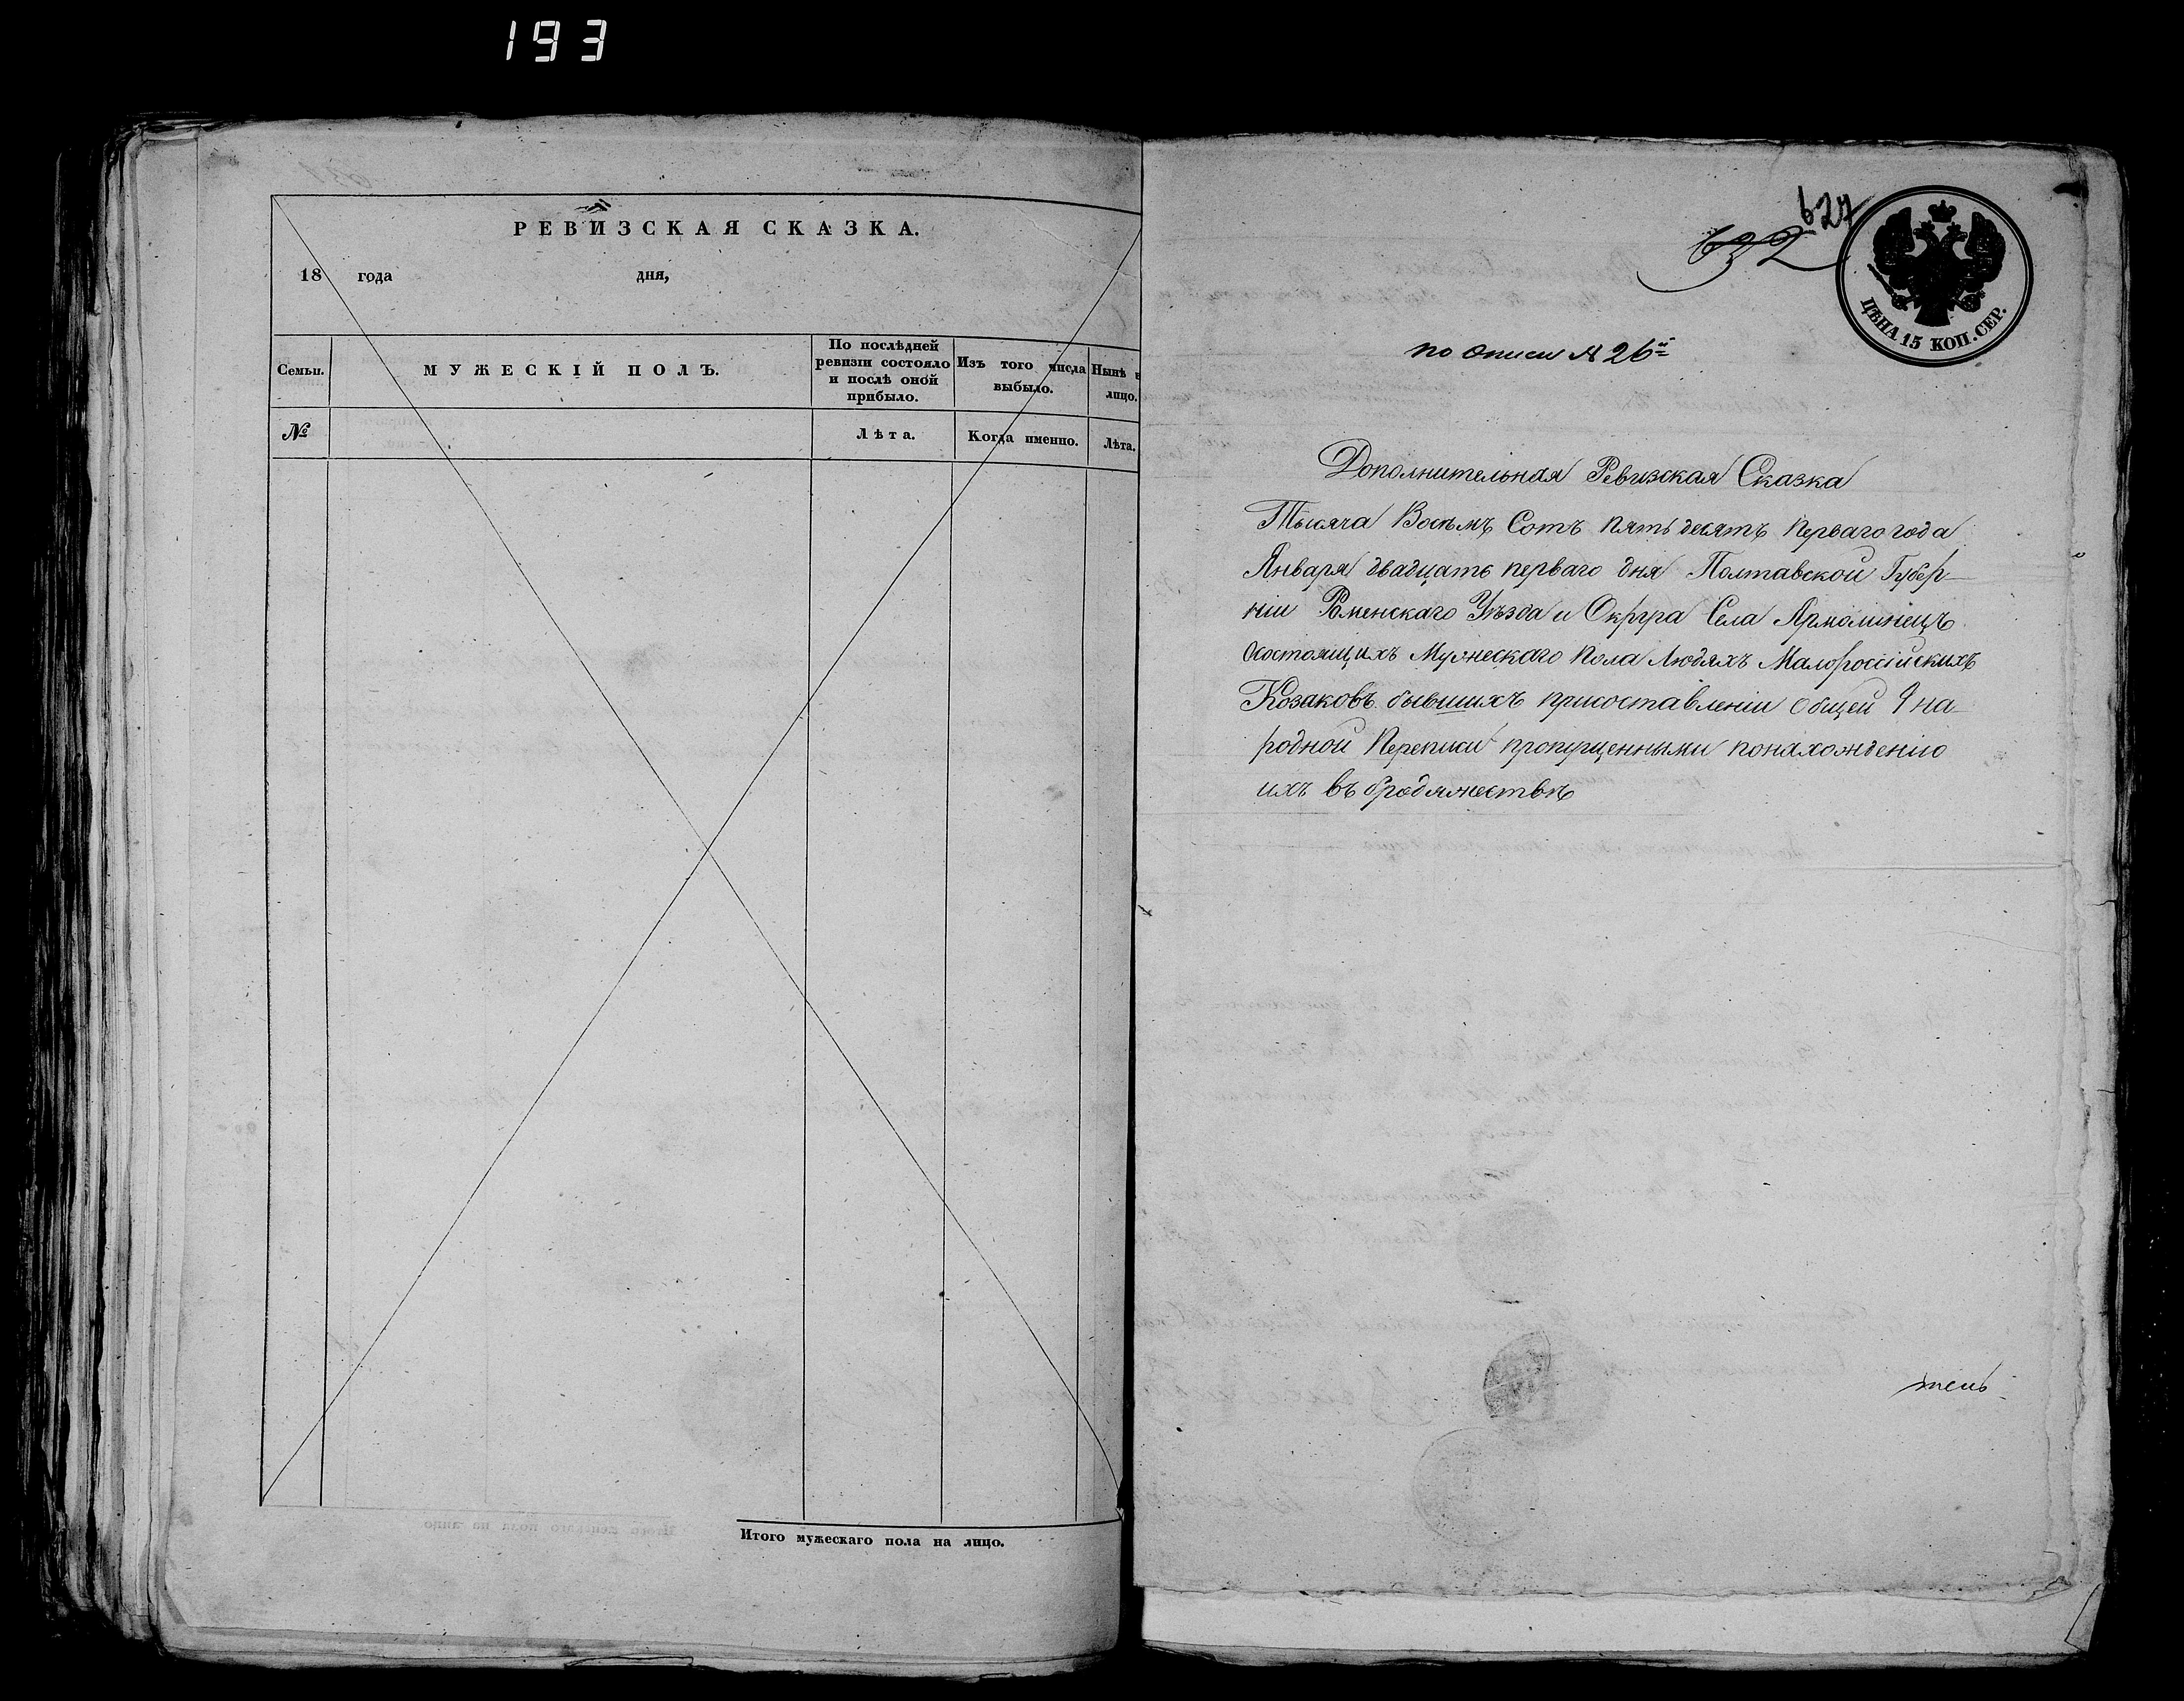 193
РЕВИЗСКАЯ СКАЗКА.
18 года дня,
Семьи.
МУЖЕСКІЙ ПОЛЪ.
По послѣдней ревизіи состояло и послѣ оной прибыло.
Изъ того числа выбыло.
Нынѣ в лицо.
№
Лѣта.
Когда именно.
Лѣта.
Итого мужескаго пола на лицо.
627
632
ЦѢНА 15 КОП. СЕР.
по описи № 26й
Дополнительная Ревизская Сказка
Тысяча Восемъ Сотъ пятьдесятъ перваго года
Января двадцать перваго дня Полтавской Губер-
ніи Роменскаго Уѣзда и Округа Села Ярмолинецъ
осостоящихъ Мужескаго пола людяхъ Малороссійскихъ
Козаковъ бывшихъ присоставленіи общей 9 на-
родной Переписи пропущенными понахожденію
ихъ въ бродяжествѣ